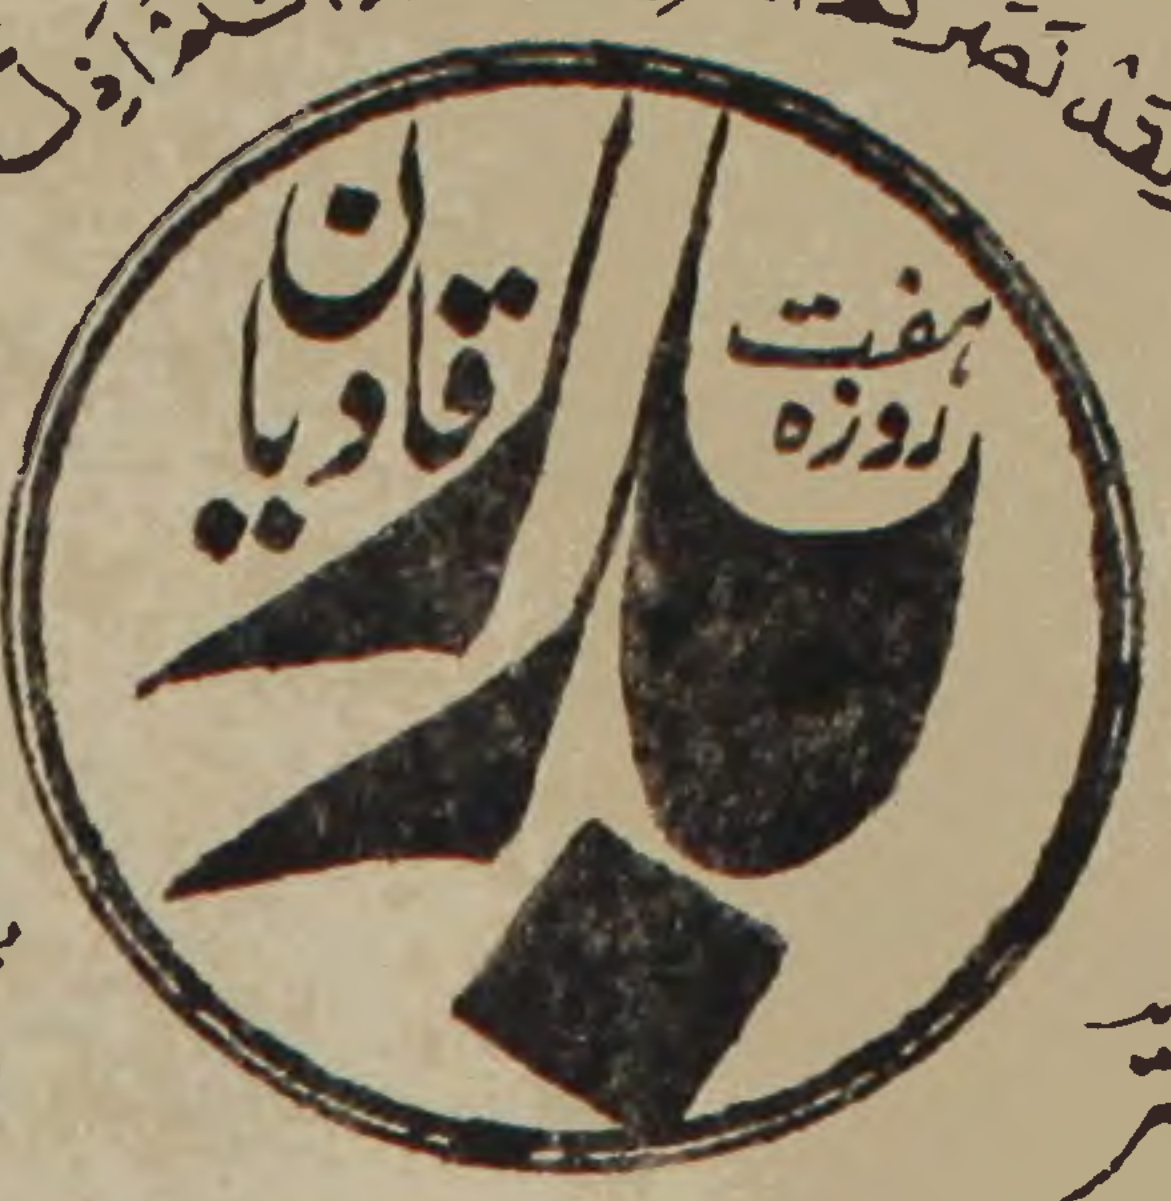 ہفت
روزہ
بدر
قادیان